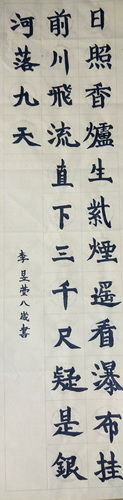 日照香爐生紫煙遥看瀑布挂
前川飛流直下三千尺疑是銀
河落九天
李昱萱八歲書